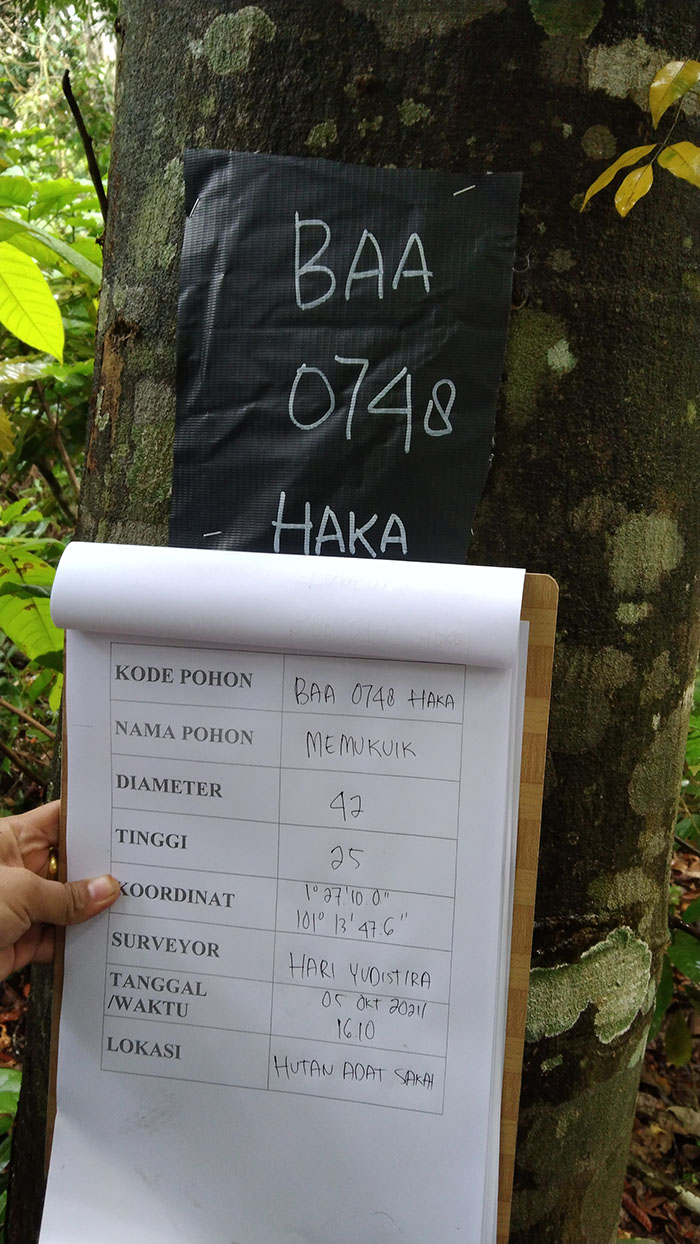 BAA
0748
HAKA
KODE POHON BAA 0748 HAKA
NAMA POHON MEMUKUIK
DIAMETER 42
TINGGI 25
KOORDINAT 1° 27' 10.0"
101° 13' 47.6"
SURVEYOR HARI YUDISTIRA
TANGGAL 05 Okt 2021/
/WAKTU 1610
LOKASI HUTAN ADAT SAKAI